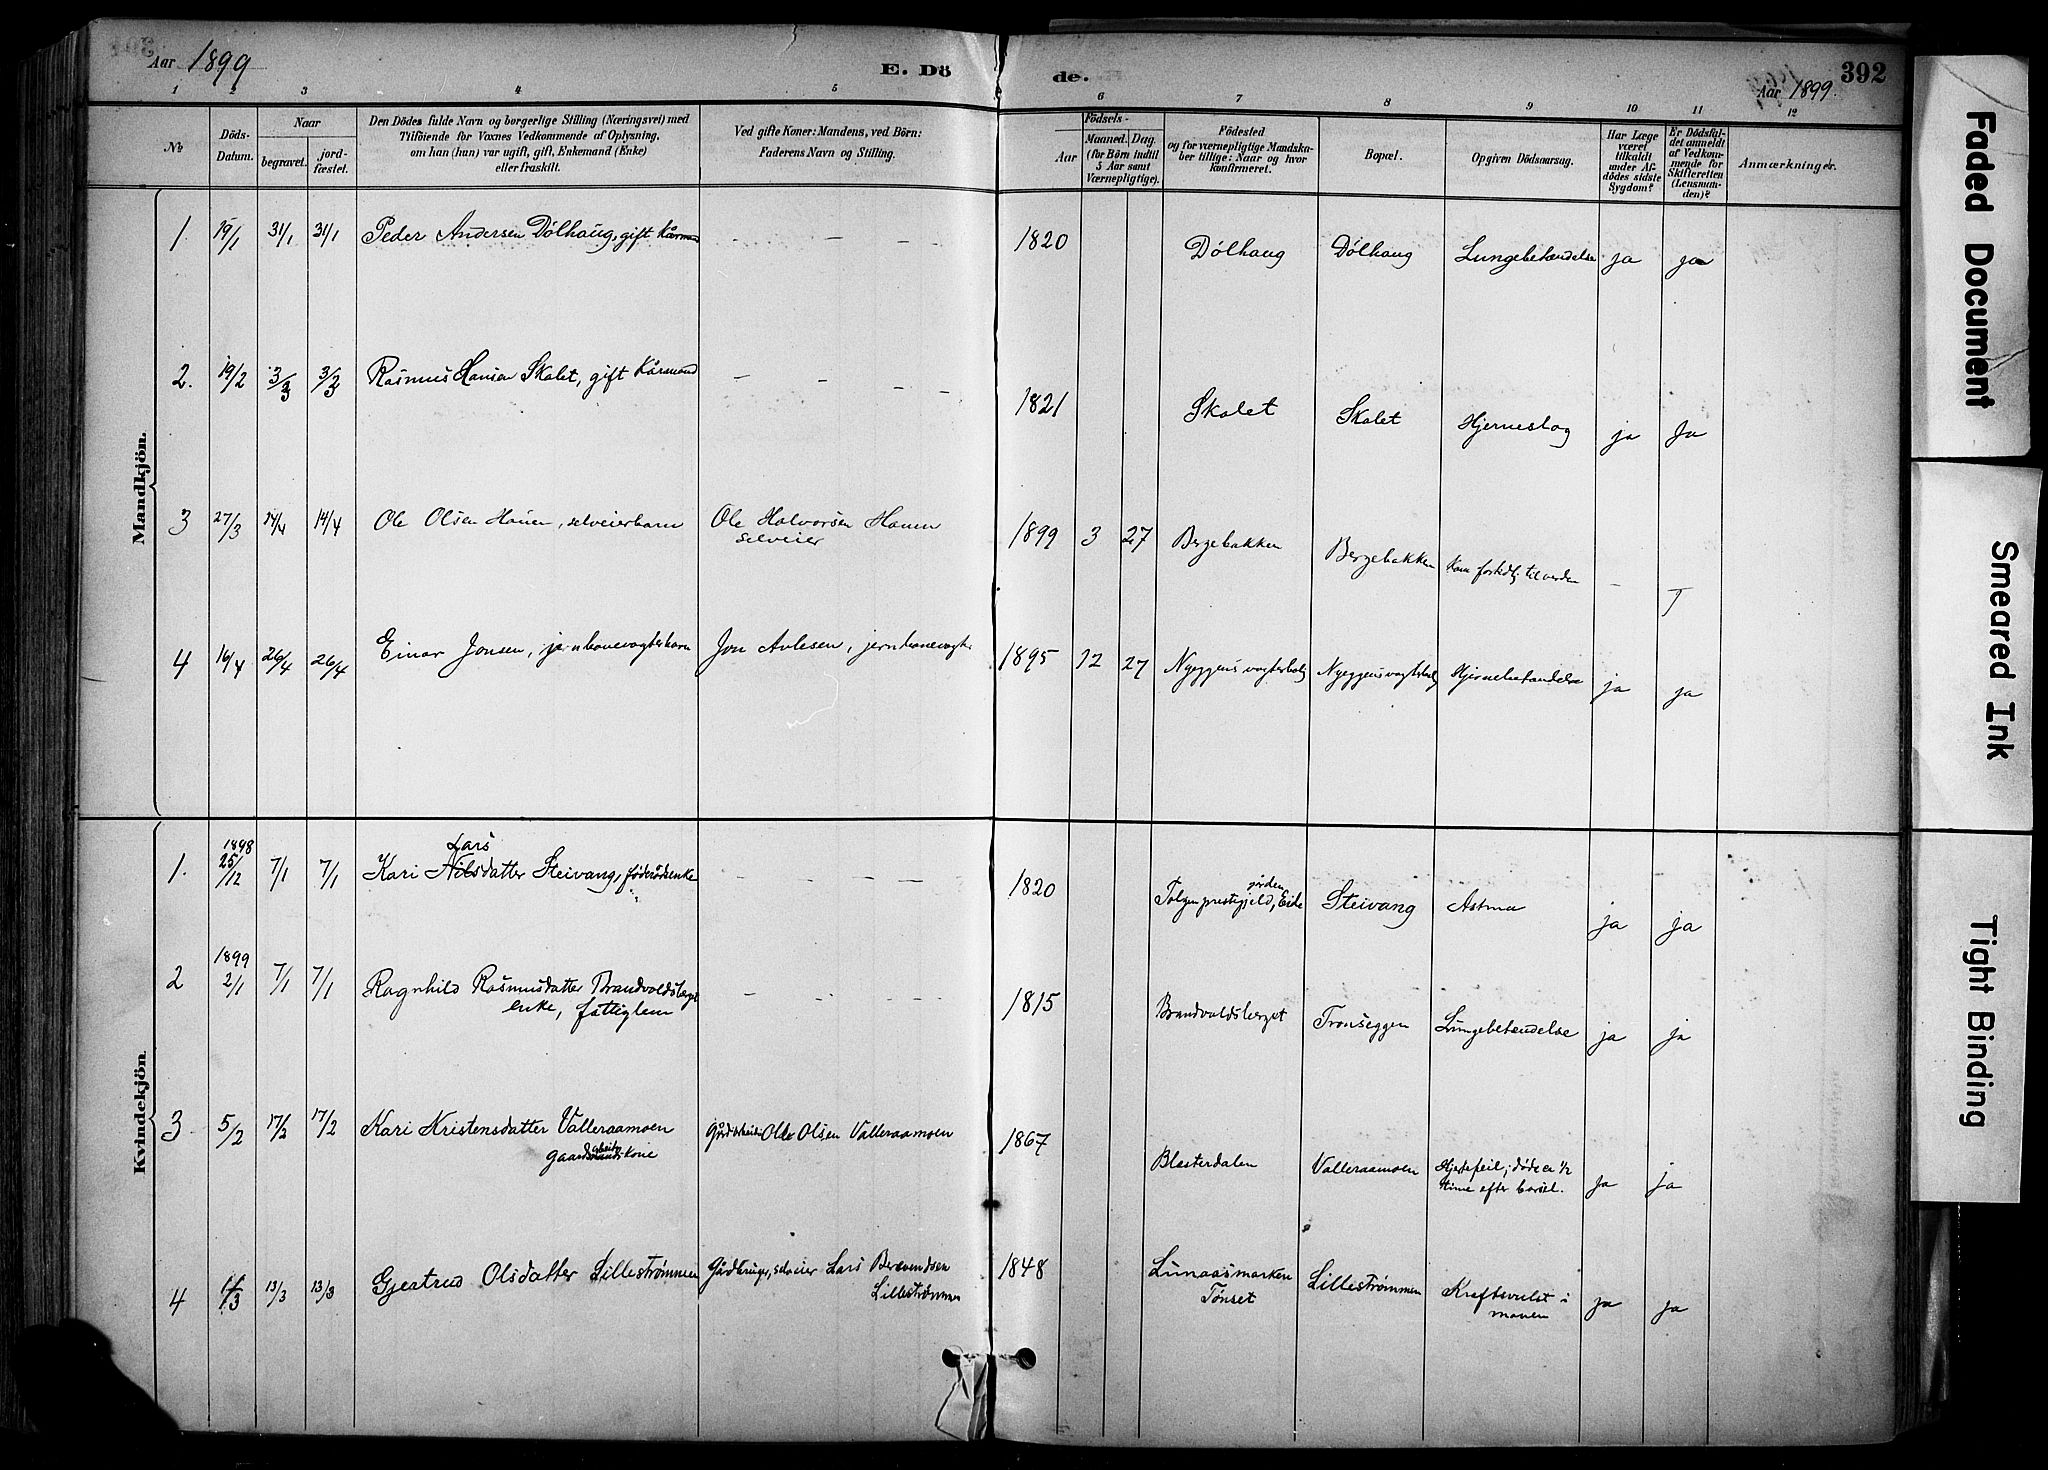 Aar 1899
E. Dö
de.
Aar 1899.
392
1 2 3 4 5 6 7 8 9 10 11 12
No
Döds-
Datum.
Naar
begravet.
jord-
fæstet.
Den Dödes fulde Navn og borgerlige Stilling (Næringsvei) med
Tilföiende for Voxnes Vedkommende af Oplysning,
om han (hun) var ugift, gift, Enkemand (Enke)
eller fraskilt.
Ved gifte Koner: Mandens, ved Börn:
Faderens Navn og Stilling.
Födsels-
Aar
Maaned.
Dag.
(for Börn indtil
5 Aar samt
Værnepligtige).
Födested
og for værnepligtige Mandska-
ber tillige: Naar og hvor
konfirmeret.
Bopæl.
Opgiven Dödsaarsag.
Har Læge
været
tilkaldt
under Af-
dödes sidste
Sygdom?
Er Dödsfal-
det anmeldt
af Vedkom-
mende for
Skifteretten
(Lensman-
den)?
Anmærkninger.
Mandkjön.
1. 19/1 31/1 31/1 Peder Andersen Dölhaug, gift Kårmand — — — — 1820 Dölhaug Dölhaug Lungebetændelse ja ja
2. 19/2 3/3 3/3 Rasmus Hansen Skalet, gift Kårmand — — — — 1821 Skalet Skalet Hjerneslag ja Ja
3 27/3 14/4 14/4 Ole Olsen Hauen, selveierbarn Ole Halvorsen Hauen
selveier
1899 3 27 Bergebakken Bergebakken Kom fortidlig til verden — J
4 16/4 26/4 26/4 Einar Jonsen, jernbanevogterbarn Jon Avlesen, jernbanevogter 1895 12 27 Nyeggens vogterbolig Nyeggens vogterbolig Hjernebetændelse ja ja
Kvindekjön.
1. 1898
25/12 7/1 7/1 Kari Lars Nilsdatter Steivang, föderådsenke — — — — 1820 Tolgen prestegjeld, Eidet Steivang Astma ja ja
2 1899
2/1 7/1 7/1 Ragnhild Rasmusdatter Brandvoldsberget
enke, fattiglem
— — — — 1815 Brandvoldsberget Tronseggen Lungebetændelse ja ja
3 5/2 17/2 17/2 Kari Kristensdatter Valleraamoen
gaardsarbeiderkone
Gårdsarbeider Ole Olsen Valleraamoen 1867 Blesterdalen Valleraamoen Hjertefeil; döde en 1/2
time efter barsel.
Ja ja
4 1/3 13/3 13/3 Gjertrud Olsdatter Lilleströmmen Gårdbruger, selveier Lars Berevendsen
Lilleströmmen
1848 Lunaasmarken
Tönset
Lilleströmmen Kræftsvulst i
maven
ja ja
Faded Document
Smeared Ink
Tight Binding